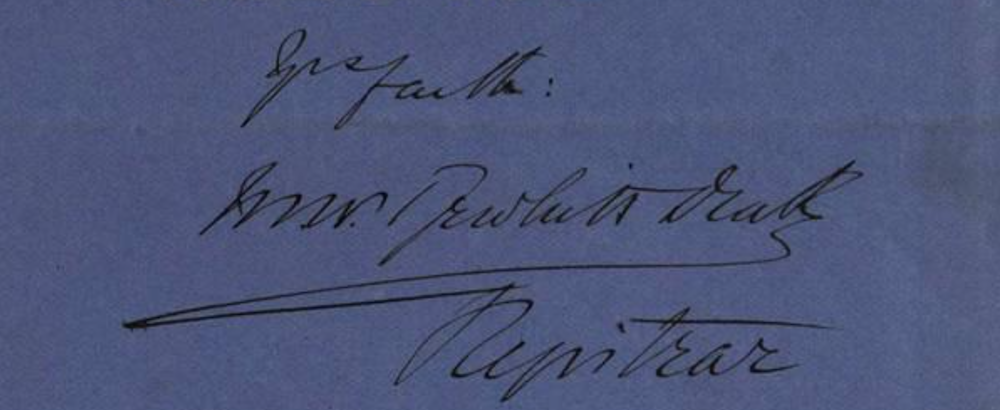 Yrs faith:
Tyrwhitt Drake
Registrar